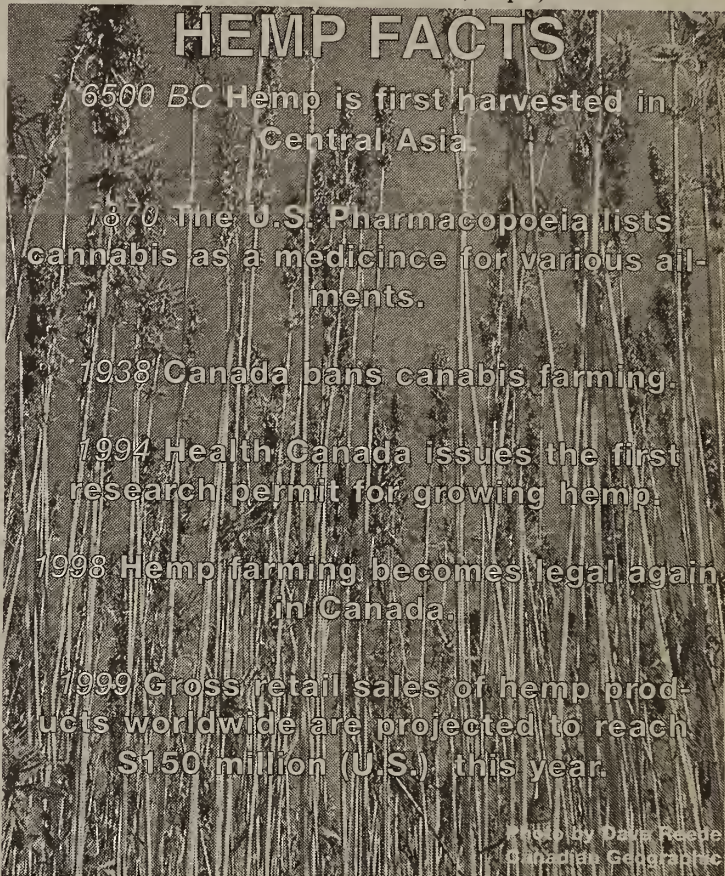 HEMP FACTS
6500 BC Hemp is first harvested in
Central Asia
1870 The U.S. Pharmacopoeia lists
cannabis as a medicince for various ail-
ments.
1938 Canada bans canabis farming.
1994 Health Canada issues the first
research permit for growing hemp.
1998 Hemp farming becomes legal again
in Canada.
1999 Gross retail sales of hemp prod-
ucts worldwide are projected to reach
$150 million (U.S.) this year.
Photo by Dave Reede
Canadian Geographic